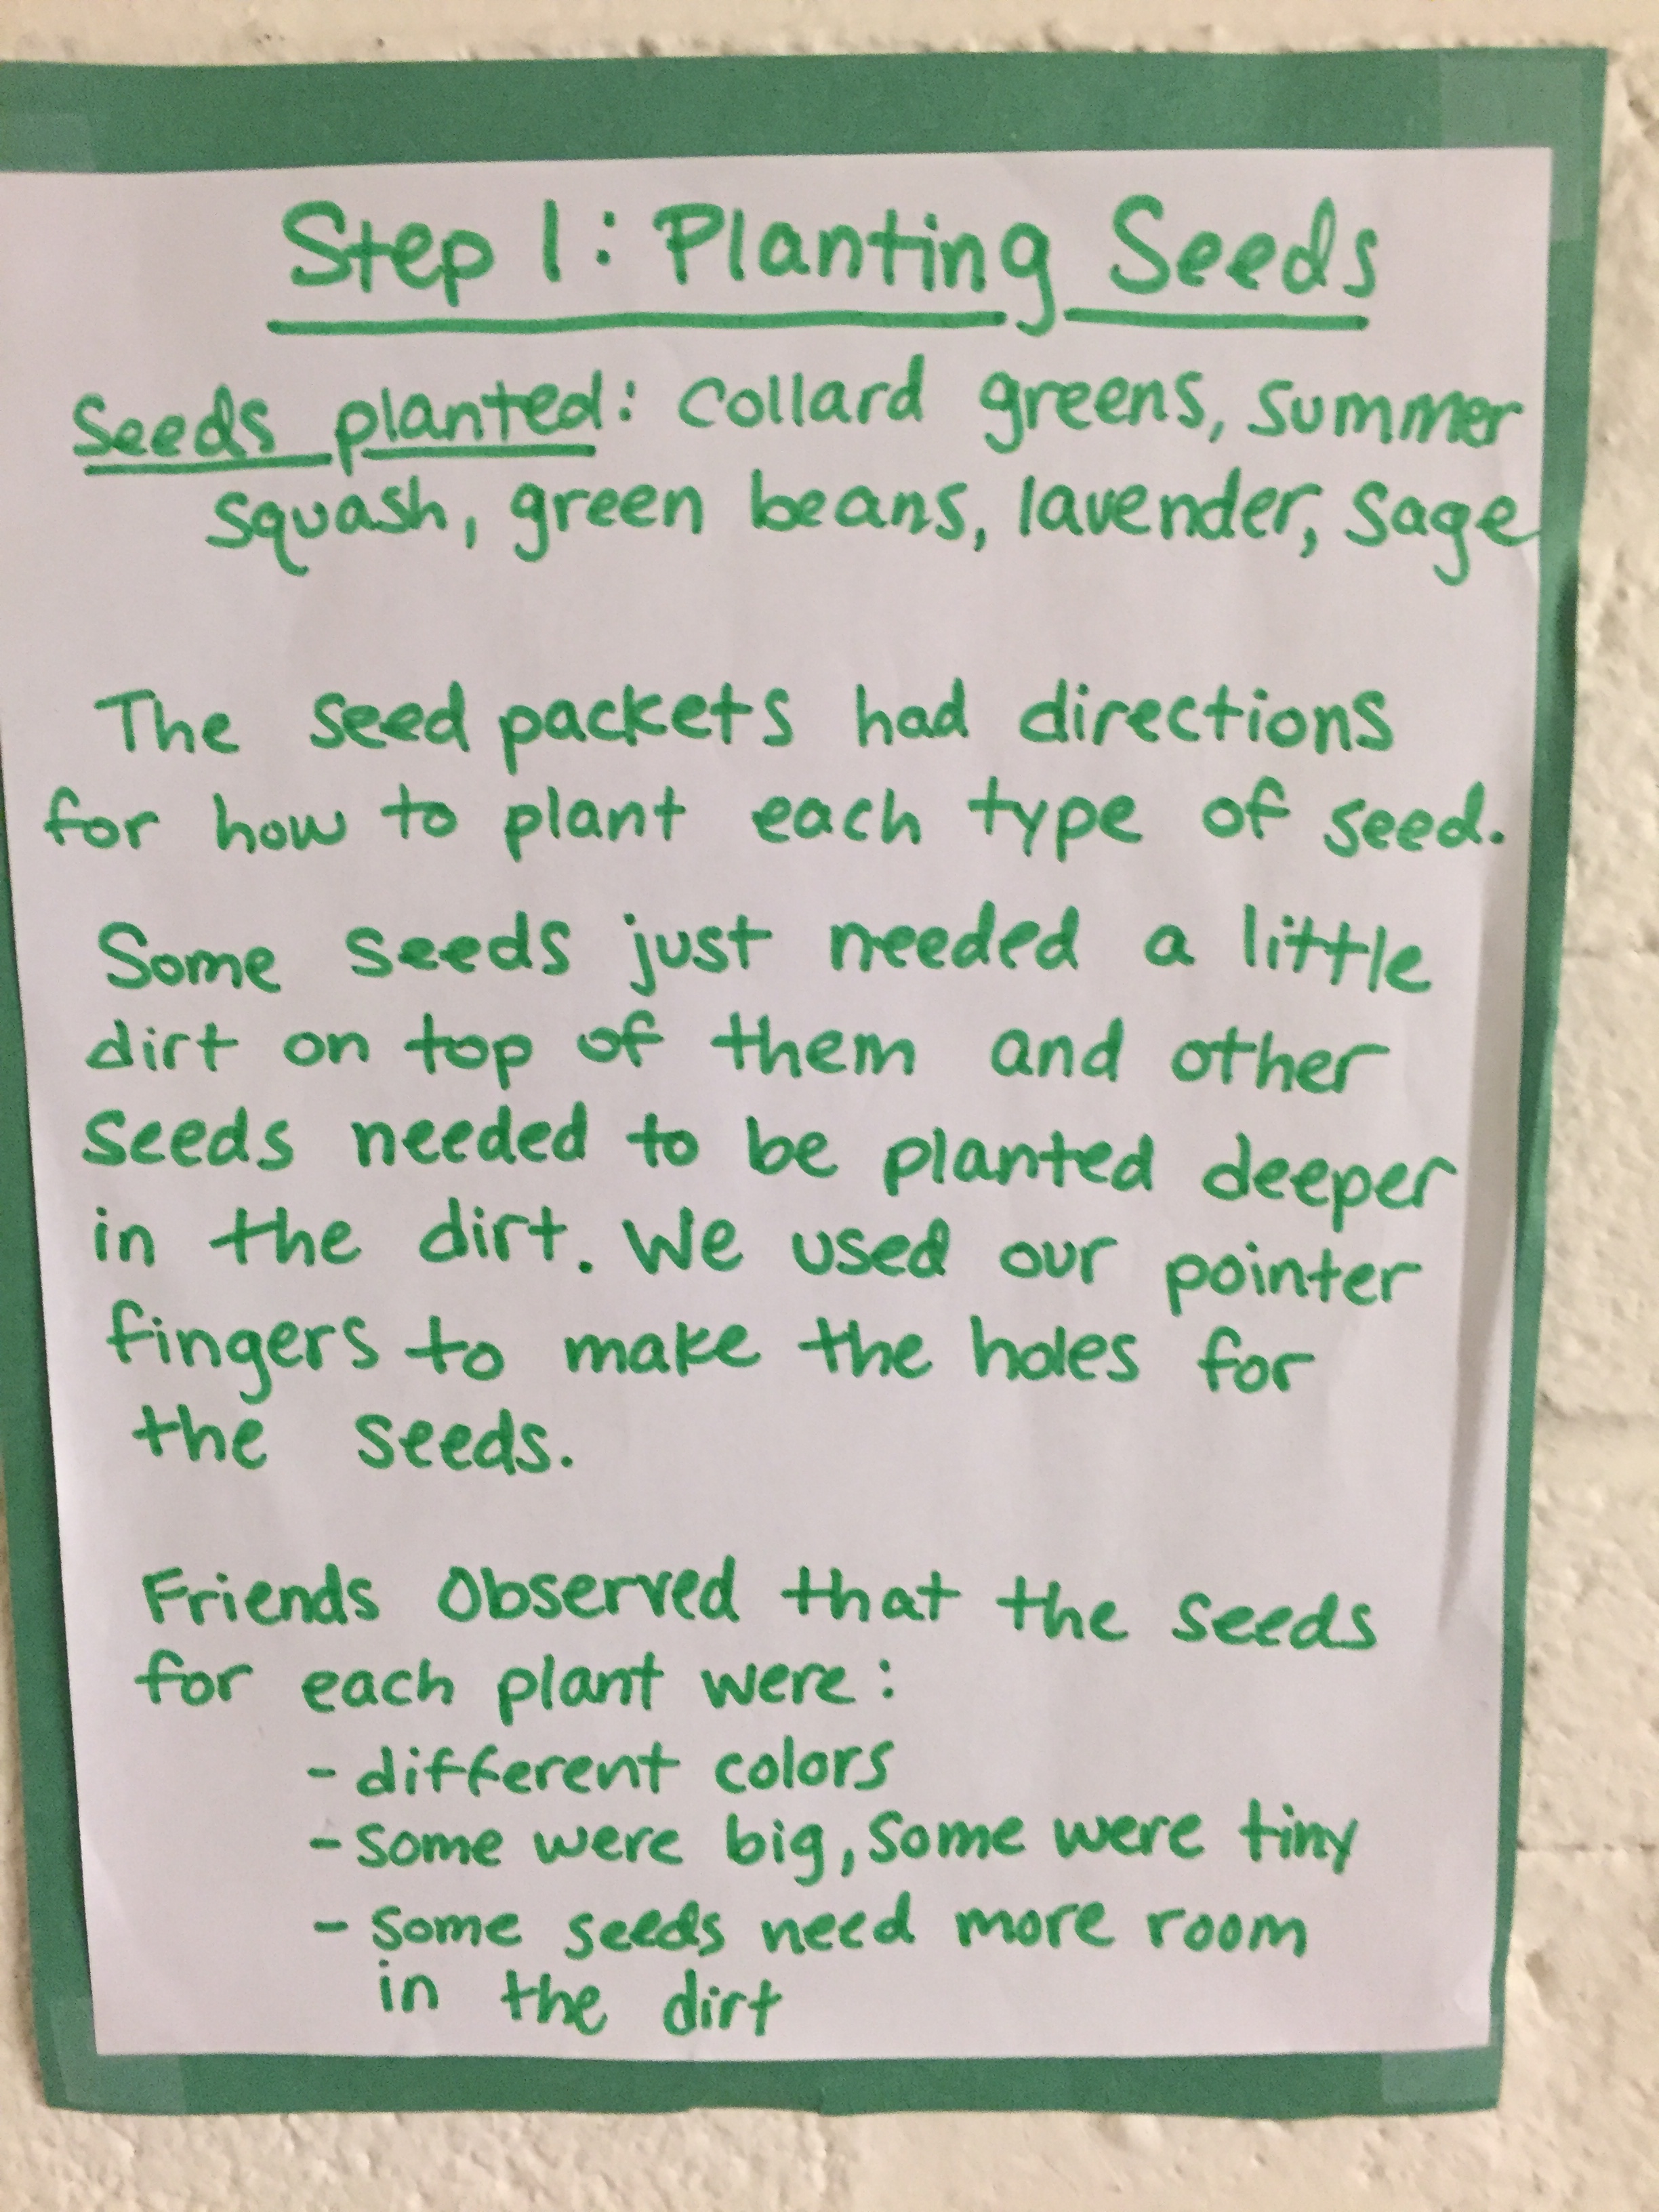 Step 1: Planting Seeds
Seeds planted: Collard greens, summer
squash, green beans, lavender, sage
The seed packets had directions
for how to plant each type of seed.
Some seeds just needed a little
dirt on top of them and other
seeds needed to be planted deeper
in the dirt. We used our pointer
fingers to make the holes for
the seeds.
Friends Observed that the seeds
for each plant were:
- different colors
- some were big, some were tiny
- some seeds need more room
in the dirt